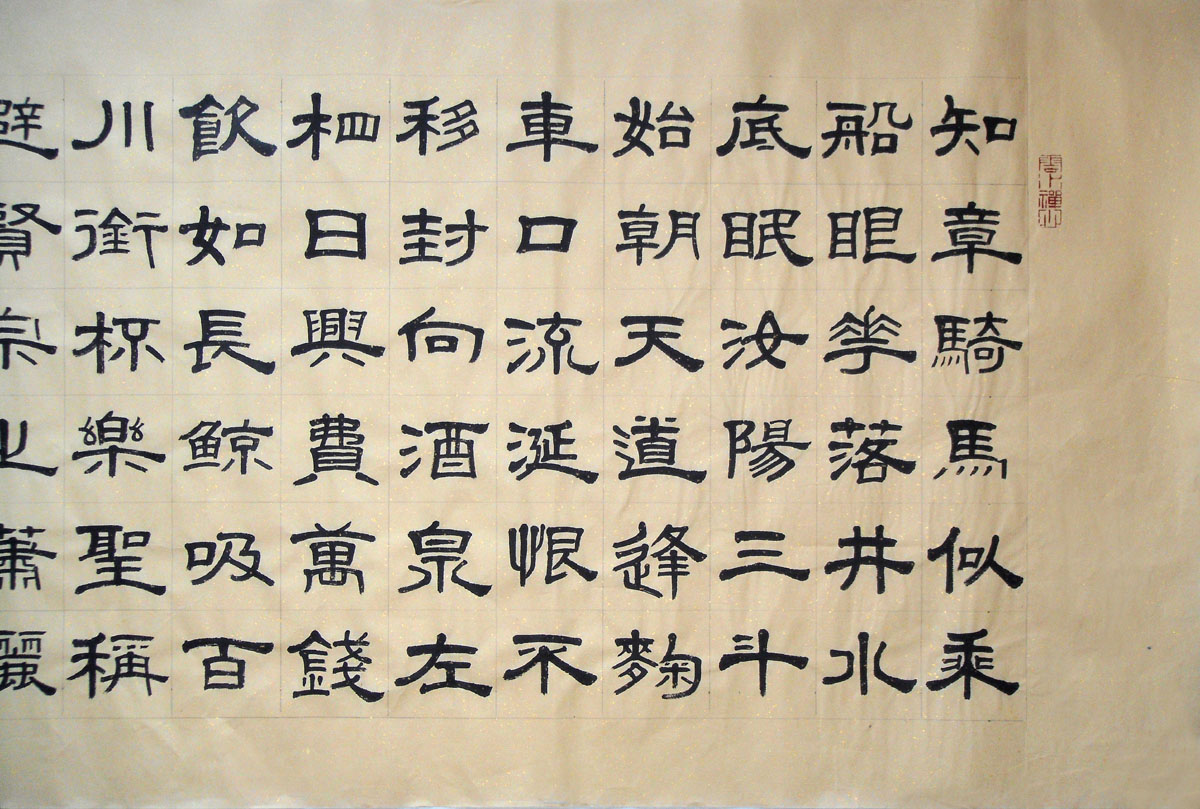 知章騎馬似乘
船眼華落井水
底眠汝陽三斗
始朝天道逢麴
車口流涎恨不
移封向酒泉左
相日興費萬錢
飲如長鯨吸百
川銜杯樂聖稱
避賢宗之瀟灑